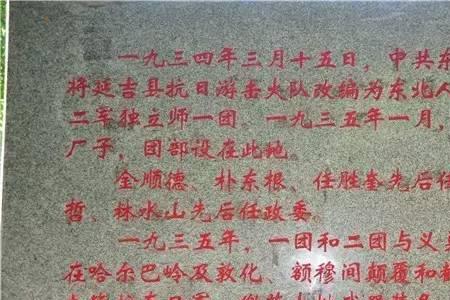 一九三四年三月十五日，中共东
将延吉县抗日游击大队改编为东北人
二军独立师一团。一九三五年一月，
厂子，团部设在此地。
金顺德、朴东根、任胜奎先后任
哲、林水山先后任政委。
一九三五年，一团和二团与义
在哈尔巴岭及敦化、额穆间颠覆和